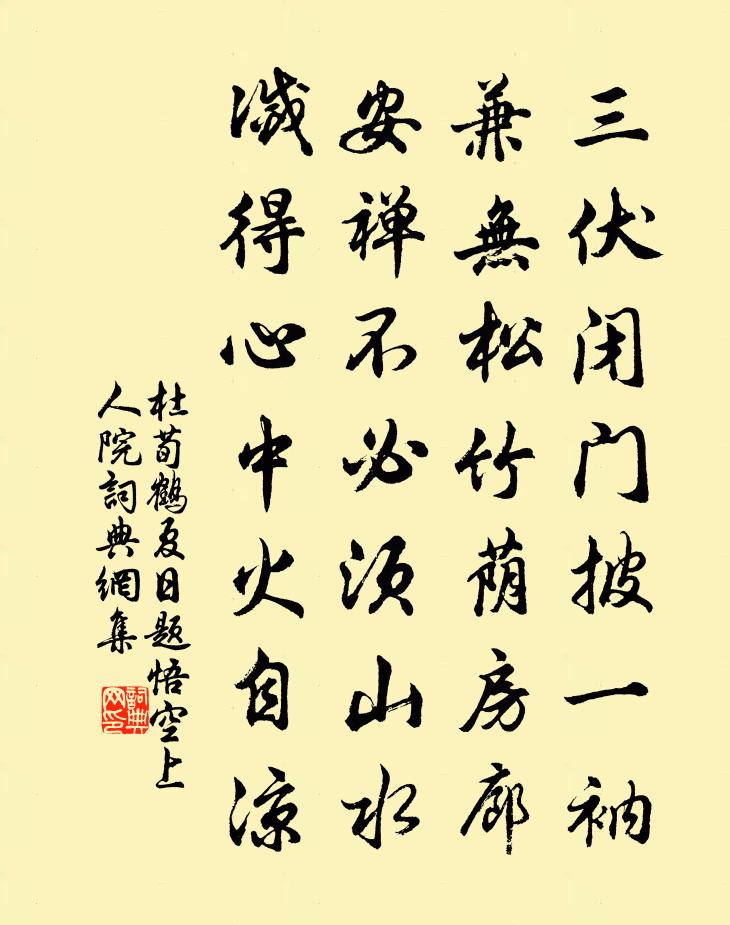 三伏闭门披一衲
兼無松竹荫房廊
安禅不必须山水
滅得心中火自凉
杜荀鶴夏日题悟空上
人院詞典網集
詞典网印